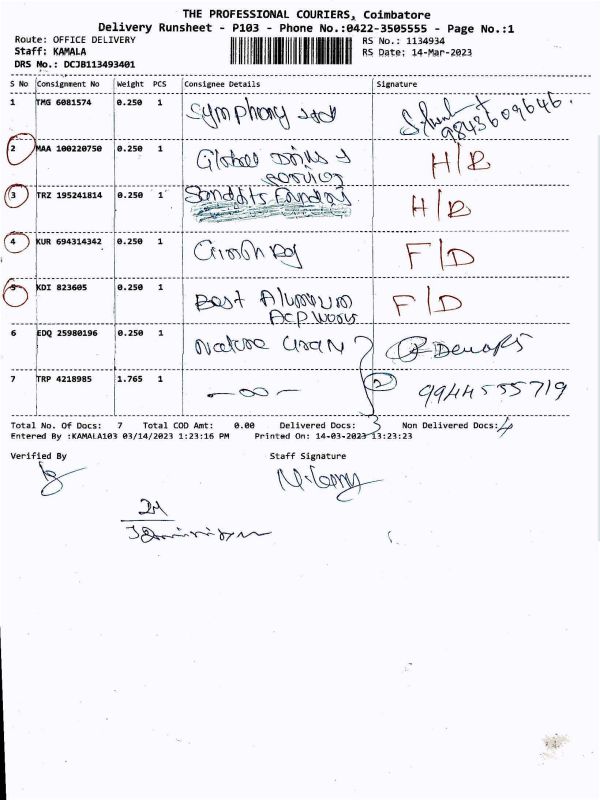 THE PROFESSIONAL COURIERS, Coimbatore
Delivery Runsheet - P103 - Phone No.:0422-3505555 - Page No.:1
Route: OFFICE DELIVERY
Staff: KAMALA
DRS No.: DCJB113493401
RS No.: 1134934
RS Date: 14-Mar-2023
S No Consignment No Weight PCS Consignee Details Signature
1 TMG 6081574 0.250 1 Symphony
9843609646.
2 MAA 100220750 0.250 1 Global
H/B
3 TRZ 195241814 0.250 1
H/B
4 KUR 694314342 0.250 1
F/D
5 KDI 823605 0.250 1 Best Aluminium
ACP works
F/D
6 EDQ 25980196 0.250 1 Nature
7 TRP 4218985 1.765 1 2 9944555719
Total No. Of Docs: 7 Total COD Amt: 0.00 Delivered Docs: 3 Non Delivered Docs: 4
Entered By :KAMALA103 03/14/2023 1:23:16 PM Printed On: 14-03-2023 13:23:23
Verified By Staff Signature